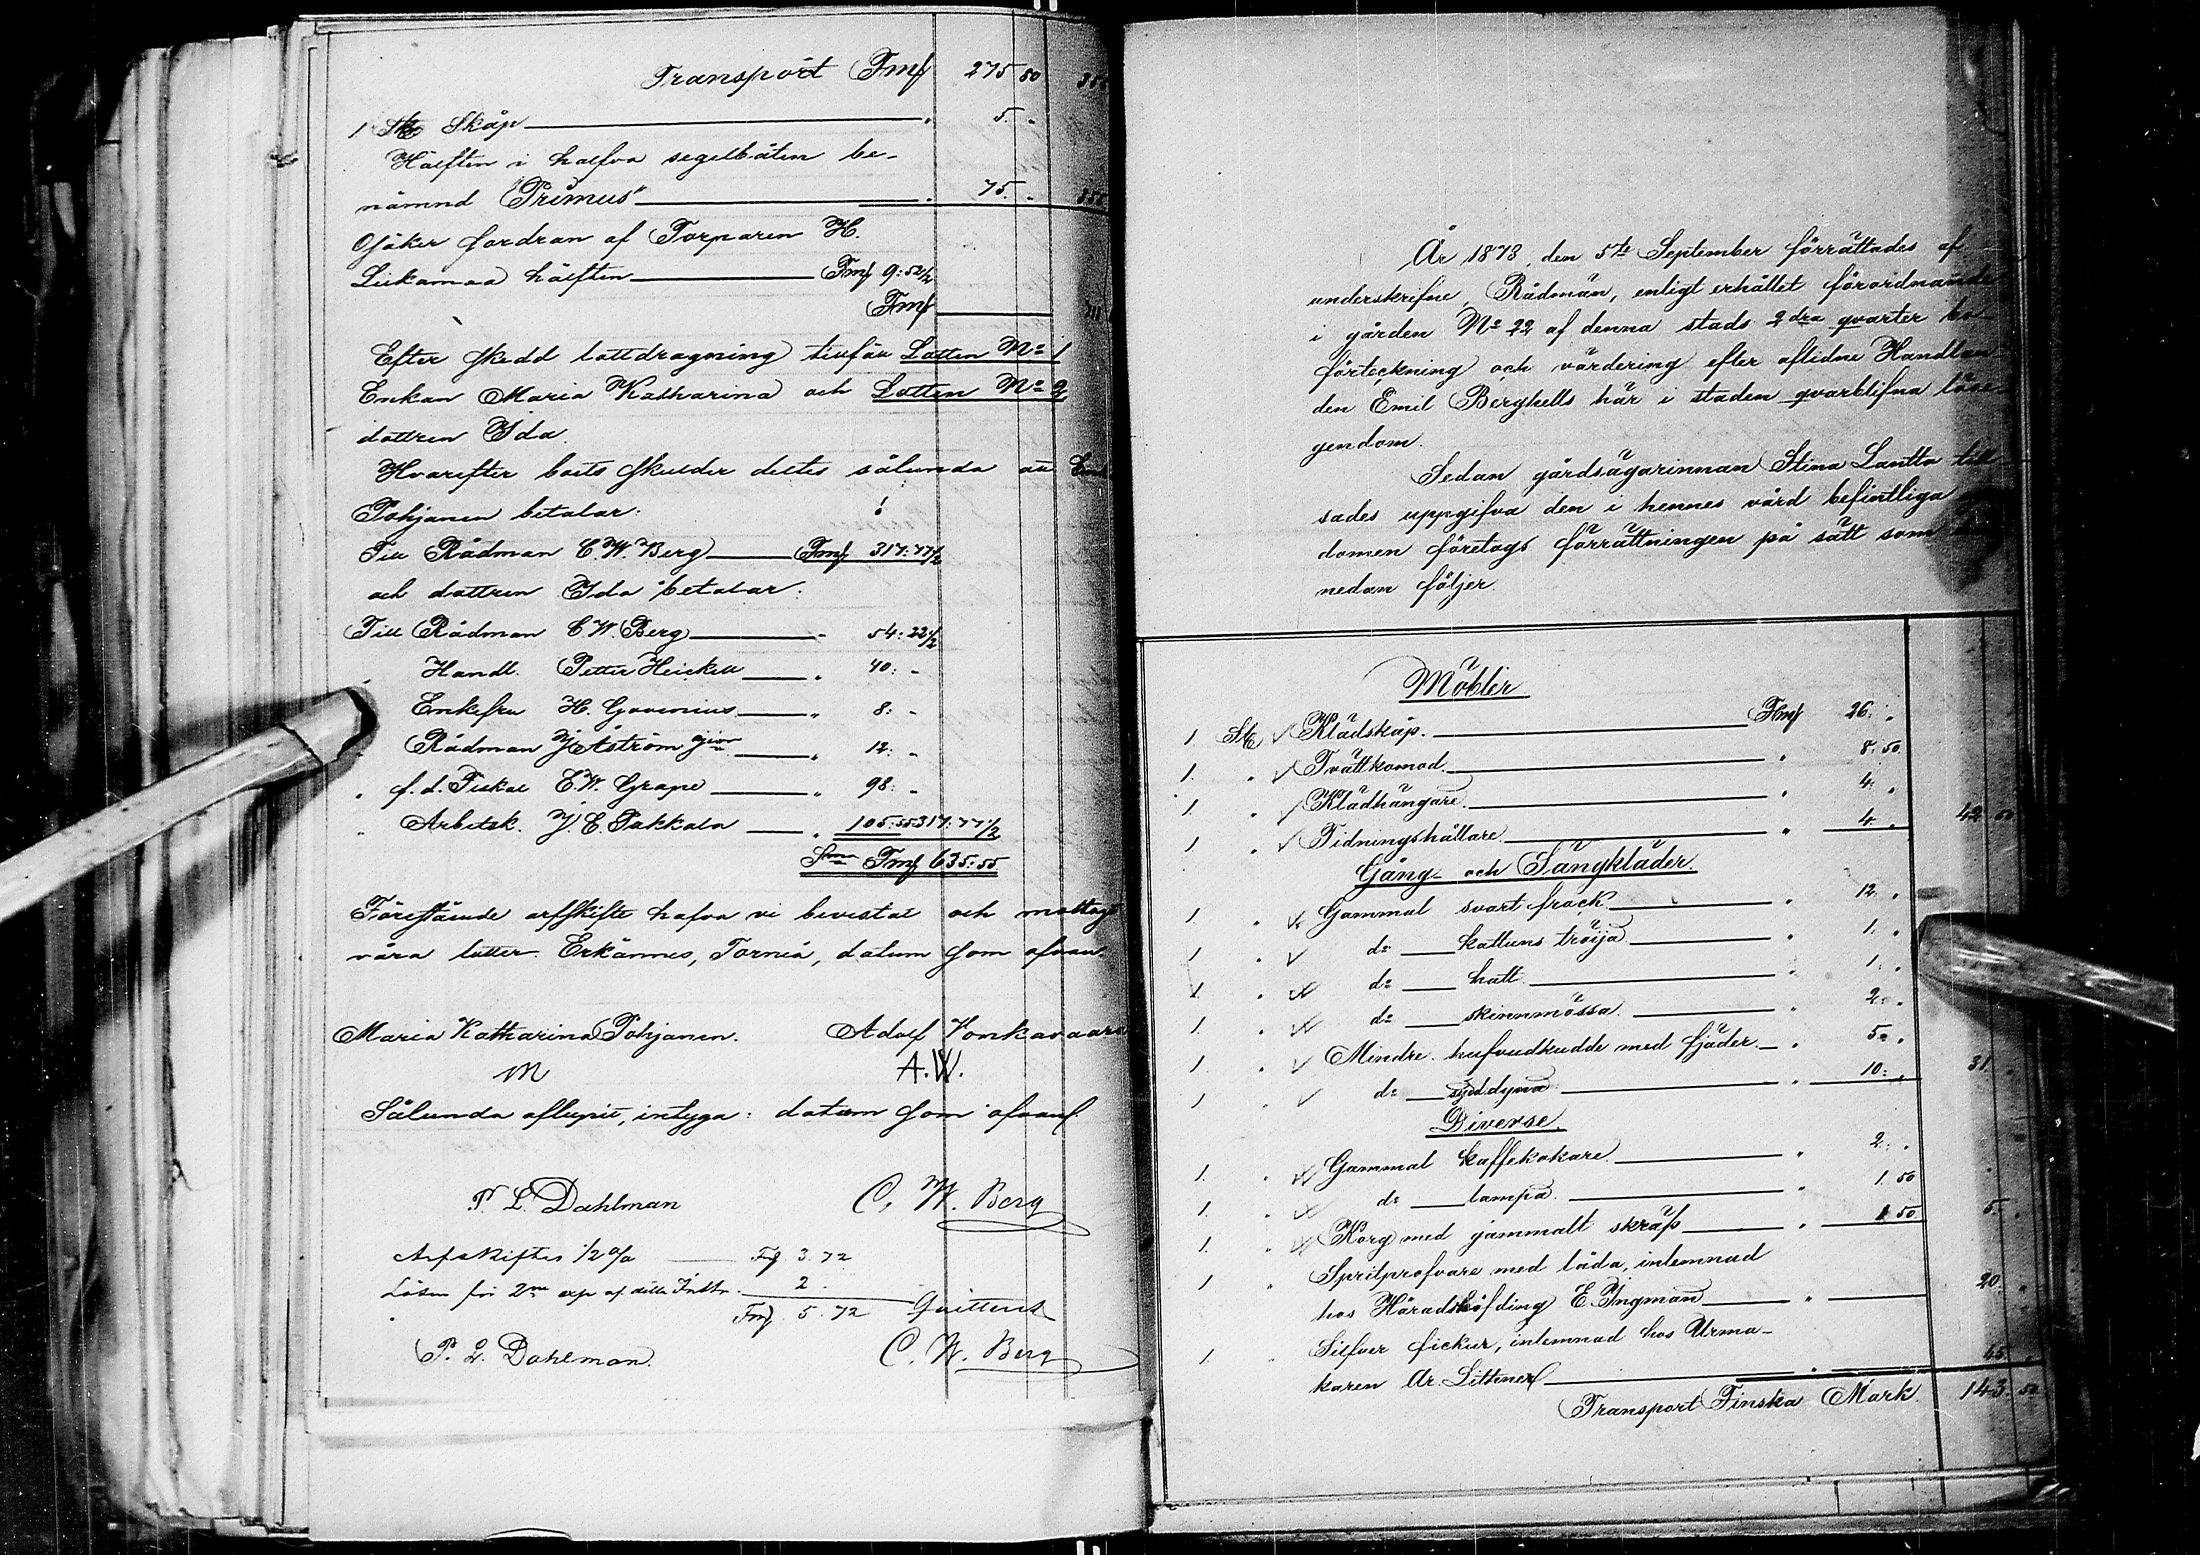 Transport Fmf 275 80
1 St. Skåp 5. "
Hälften i halfva segelbåten be-
nämnd "Primus" 75. "
Osäker fordran af Torparen H.
Liekamaa hälften Fmf 9:52 1/2
Fmf
Efter skedd lottdragning tillföll Lotten No 1
Enkan Maria Katharina och Lotten No 2
dottren Ida.
Hvarefter boets skulder deltes sålunda att
Pohjanen betalar:
Till Rådman C. W. Berg Fmf 317:77 1/2
och dottren Ida betalar:
Till Rådman C W. Berg " 54:22 1/2
" Handl. Petter Heickell " 40: -
Enkefru H. Govenius " 8: -
" Rådman J Åström " 12: -
" f. d. Fiskal E. W. Grape " 98: -
" Arbetsk. J. E. Pakkala " 105:55 317:77 1/2
Sma Fmf 635:55
Förestående arfskifte hafva vi bevistat och mottagit
våra lotter. Erkännes, Torneå, datum som ofvan.
Maria Katharina Pohjanen. Adolf
m A. W.
Sålunda aflupit, intyga: datum som ofvan.
P. L. Dahlman C. W. Berg
Arfskiftes 1/2 % Fmf 3. 72
Lösen för 2ne exp af detta Instr. 2.
Fmf 5. 72 Quitteras
P. L. Dahlman. C. W. Berg
År 1873, den 5te September förrättades af
underskrifne, Rådman, enligt erhållet förordnande
i gården No 22 af denna stads 2dra qvarter bo-
förteckning och värdering efter aflidne Handlan-
den Emil Berghells här i staden qvarblifna löse-
gendom.
Sedan gårdsägarinnan Stina Lantto till-
sades uppgifva den i hennes vård befintliga
domen företogs förrättningen på sätt som
nedan följer.
Möbler
1 St. Klädskåp. Fmf 26. "
1. " Tvättkomod. " 8. 50.
1. " Klädhängare. " 4. "
1 " Tidningshållare. " 4. " 42 50
Gång- och Sängkläder.
1 " Gammal svart frack. " 12. "
1 " do kattuns tröija " 1. "
1. " do hatt. " 1. "
1. " do skinnmössa. " 2. "
1 " Mindre hufvudkudde med fjäder. " 5. "
1 " do dyna " 10. " 31 "
Diverse.
1. " Gammal kaffekokare. " 2. "
1. " do lampa. " 1. 50
1. " Korg med gammalt skräp " 1 50 5. "
1 " Spritprofvare med låda, inlemnad
hos Häradshöfding E. Ingman " 20. "
1. " Silfver fickur, inlemnad hos Urma-
karen Ar. Littner " 45. "
Transport Finska Mark 143. 50